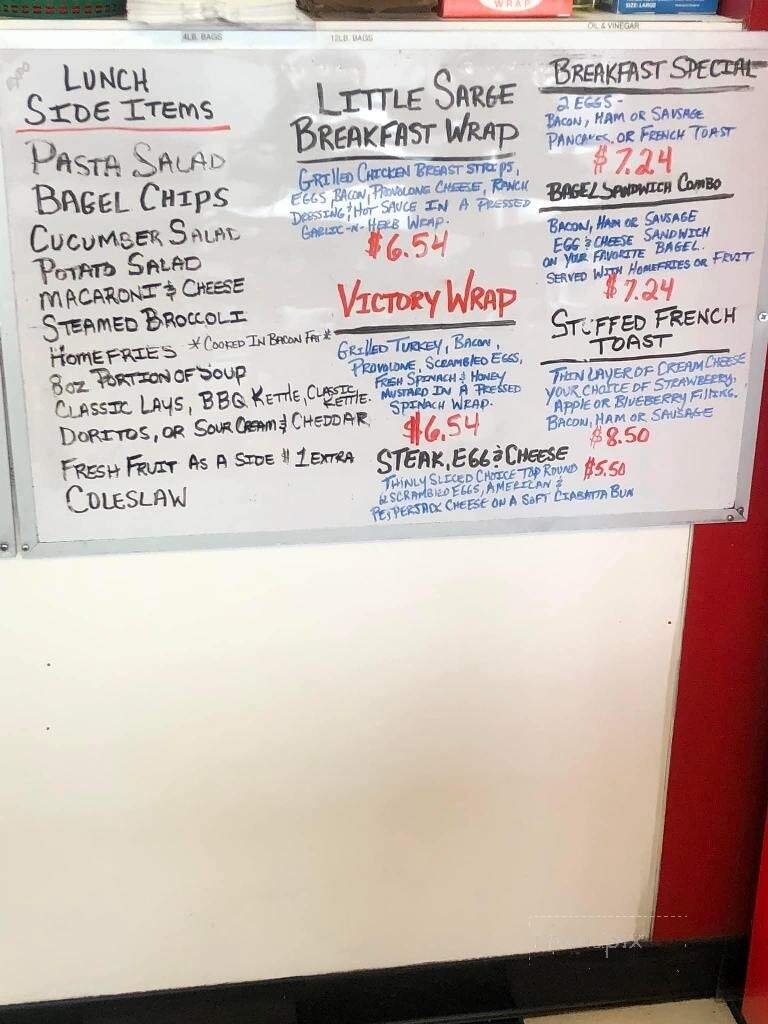 WRAP
SIZE: LARGE
4LB. BAGS
12LB. BAGS
OIL & VINEGAR
LUNCH
SIDE ITEMS
PASTA SALAD
BAGEL CHIPS
CUCUMBER SALAD
POTATO SALAD
MACARONI & CHEESE
STEAMED BROCCOLI
HOMEFRIES *COOKED IN BACON FAT*
8oz PORTION OF SOUP
CLASSIC LAYS, BBQ KETTLE, CLASSIC KETTLE.
DORITOS, OR SOUR CREAM & CHEDDAR
FRESH FRUIT AS A SIDE $1 EXTRA
COLESLAW
LITTLE SARGE
BREAKFAST WRAP
GRILLED CHICKEN BREAST STRIPS,
EGGS, BACON, PROVOLONE CHEESE, RANCH
DRESSING & HOT SAUCE IN A PRESSED
GARLIC-N-HERB WRAP.
$6.54
VICTORY WRAP
GRILLED TURKEY, BACON,
PROVOLONE, SCRAMBLED EGGS,
FRESH SPINACH & HONEY
MUSTARD IN A PRESSED
SPINACH WRAP.
$6.54
STEAK, EGG & CHEESE
THINLY SLICED CHOICE TOP ROUND $5.50
2 SCRAMBLED EGGS, AMERICAN &
PEPPERJACK CHEESE ON A SOFT CIABATTA BUN
BREAKFAST SPECIAL
2 EGGS -
BACON, HAM OR SAUSAGE
PANCAKES OR FRENCH TOAST
$7.24
BAGEL SANDWICH COMBO
BACON, HAM OR SAUSAGE
EGG & CHEESE SANDWICH
ON YOUR FAVORITE BAGEL.
SERVED WITH HOMEFRIES OR FRUIT
$7.24
STUFFED FRENCH
TOAST
THIN LAYER OF CREAM CHEESE
YOUR CHOICE OF STRAWBERRY,
APPLE OR BLUEBERRY FILLING.
BACON, HAM OR SAUSAGE
$8.50